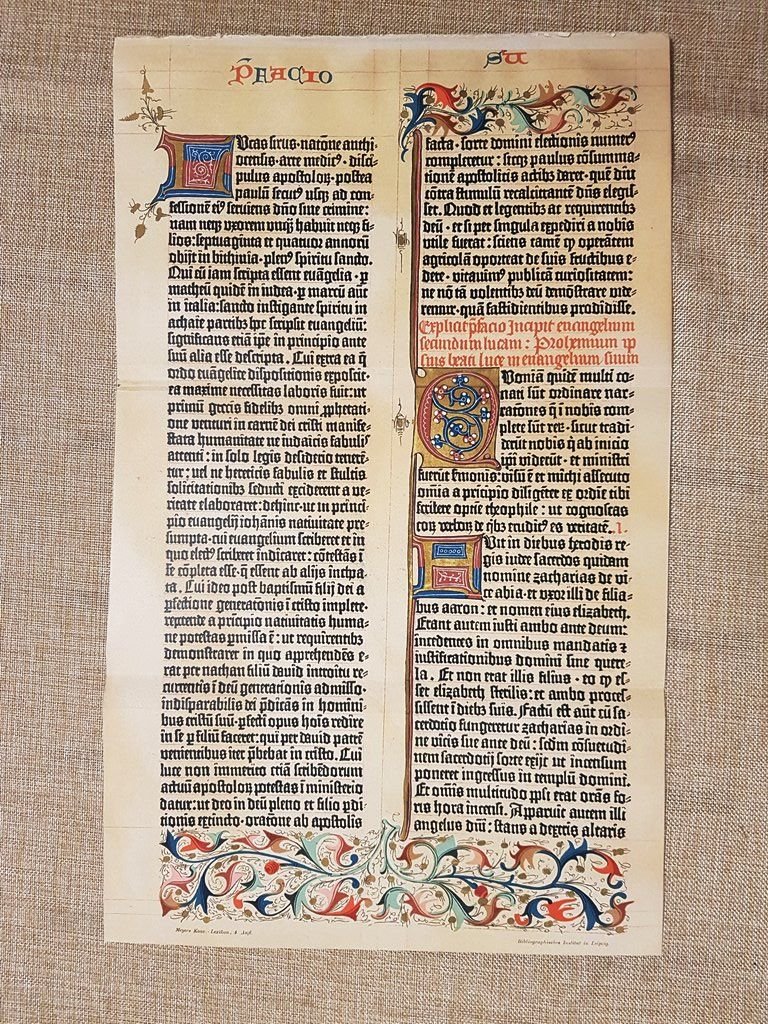 P̄FACIO
SU
Vcas sirus · natiōne anthi
ocensis · arte medic⁹ · disci
pulus apostoloꝝ · postea
paulū secut⁹ usqꝫ ad con⸗
fessionē ei⁹ serviens dn̄o sine crimine:
nam neqꝫ uxorem unqꝫ habuit neqꝫ fi⸗
lios: septuaginta et quatuor annoꝝ
obijt in bithinia · plen⁹ spiritu sancto.
Qui cū iam scripta essent euāgelia · ꝑ
matheū quidē in iudea · ꝑ marcū aut̄
in italia: sancto instigante spiritu in
achaie partibꝫ hoc scripsit euangeliū:
significans etiā ip̄e in principio ante
suū alia esse descripta. Cui extra ea q̄
ordo euāgelice dispositionis exposcit ·
ea maxime necessitas laboris fuit: ut
primū grecis fidelibꝫ omni ꝓphetati⸗
one venturi in carnē dei cristi manife⸗
stata humanitate ne iudaicis fabulis
attenti: in solo legis desiderio tenerē⸗
tur: vel ne hereticis fabulis et stultis
solicitationibꝫ seducti exciderent a ve⸗
ritate elaboraret: dehinc · ut in princi⸗
pio euangelij iohānis nativitate pre⸗
sumpta · cui euangelium scriberet et in
quo elect⁹ scriberet indicaret: cōtestās ī
se cōpleta esse · q̄ essent ab alijs incho⸗
ata. Cui ideo post baptismū filij dei a
ꝑfectione generatōnis ī cristo implete ·
repetende a pricipio nativitatis huma⸗
ne potestas ꝑmissa ē: ut requirētibꝫ
demonstraret in quo apprehendēs e⸗
rat per nathan filiū david introitu re⸗
currentis ī deū generationis admisso ·
indisparabilis dei p̄dicās in homini⸗
bus cristū suū · ꝑfecti opus hoīs redire
in se ꝑ filiū faceret: qui per david patrē
venientibus iter p̄bebat in cristo. Cui
luce non immerito etiā scribēdorum
actuū apostoloꝝ potestas ī ministerio
datur: ut deo in deū pleno et filio ꝓdi⸗
tionis extincto · oratōne ab apostolis
facta · sorte domini electionis numer⁹
compleretur: sicqꝫ paulus cōsumma⸗
tionē apostolicis actibꝫ daret · quē diu
cōtra stimulū recalcitrantē dn̄s elegis⸗
set. Quod et legentibꝫ ac requirentibꝫ
deū · et si per singula expediri a nobis
utile fuerat: sciens tamē q̄ operātem
agricolā oporteat de suis fructibus e⸗
dere · vitavim⁹ publicā curiositatem:
ne nō tā volentibꝫ deū demōstrare vide⸗
remur · quā fastidientibus prodidisse.
Explicit p̄facio Incipit euangelium
secundum lucam: Prohemium ip
sius beati luce in euangelium suum
Quoniā quidē multi co⸗
nati sūt ordinare nar⸗
rationes q̄ ī nobis com⸗
plete sūt reꝝ · sicut tradi⸗
derūt nobis q̄ ab inicio
ip̄i viderūt · et ministri
fuerūt sermonis: visū ē et michi assecuto
omīa a pricipio diligēter ex ordīe tibi
scribere optīe theophile: ut cognoscas
eoꝝ verboꝝ de q̄bꝫ erudit⁹ es veritatē. I.
Fuit in diebus herodis re⸗
gis iude sacerdos quidam
nomine zacharias de vi⸗
ce abia · et uxor illi de filia⸗
bus aaron: et nomen eius elizabeth.
Erant autem iusti ambo ante deum:
incedentes in omnibus mandatis ⁊
iustificationibus domini sine quere⸗
la. Et non erat illis filius · eo q̄ es⸗
set elizabeth sterilis: et ambo proces⸗
sissent ī diebꝫ suis. Factū est aūt cū sa⸗
cerdotio fungeretur zacharias in ordi⸗
ne vicis sue ante deū: scd̄m cōsuetudi⸗
nem sacerdotij sorte exijt ut incensum
poneret ingressus in templū domini.
Et om̄is multitudo ppl̄i erat orās fo⸗
ris hora incensi. Apparuit autem illi
angelus dn̄i: stans a dextris altaris
Meyers Konv.-Lexikon, 4. Aufl.
Bibliographisches Institut in Leipzig.